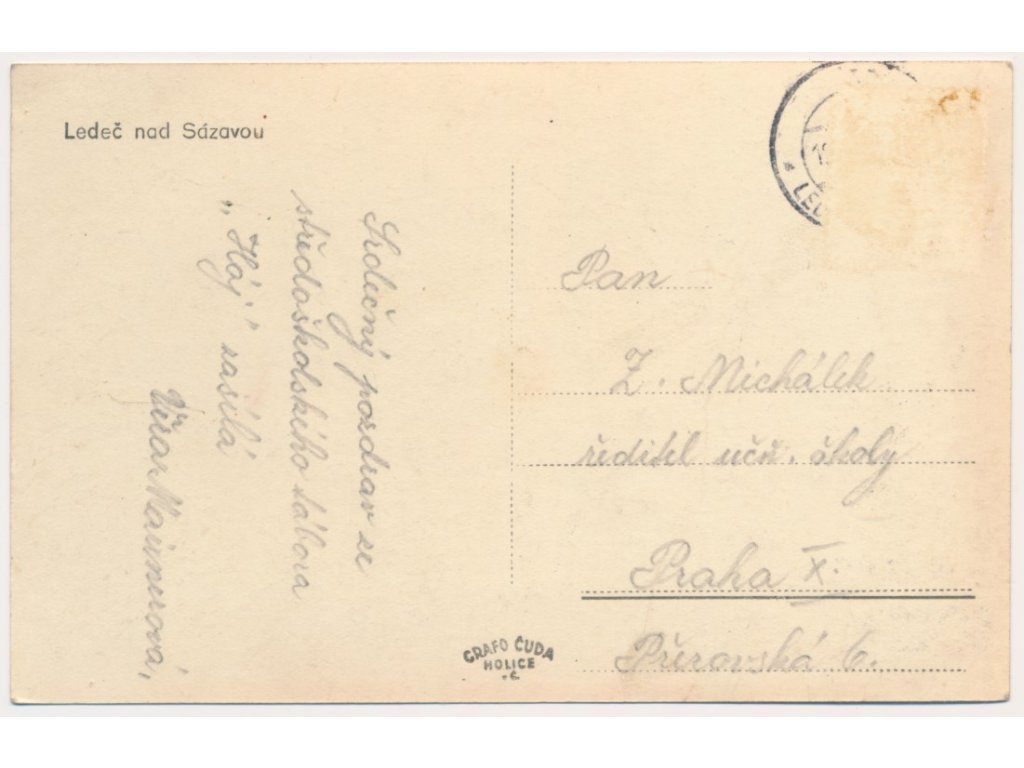 Ledeč nad Sázavou
Srdečný pozdrav ze
středoškolského tábora
„Háj“ zasílá
Věra
Pan
Z. Michálek
ředitel učň. školy
Praha X.
Přerovská 6.
GRAFO ČUDA
HOLICE